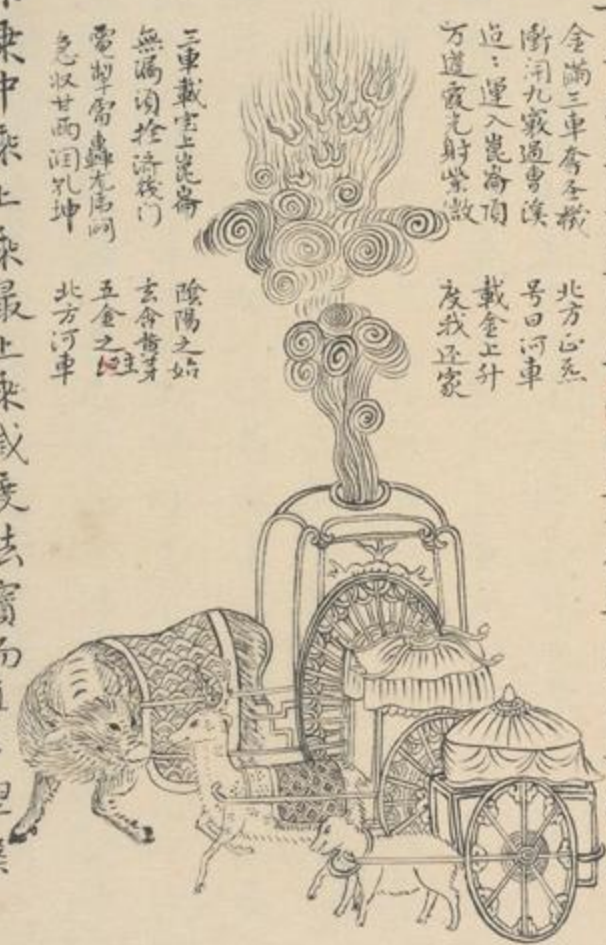 金滿三車奪圣機
衝開九竅過曹溪
迢〻運入崑崙頂
万道霞光射紫微
北方正炁
号曰河車
載金上升
度我还家
三車載宝上崑崙
無漏須拴濟筏门
電掣雷轟龙虎鬥
急收甘雨润乾坤
陰陽之始
玄含黃芽
五金之主
北方河車
乘中乘上乘最上乘